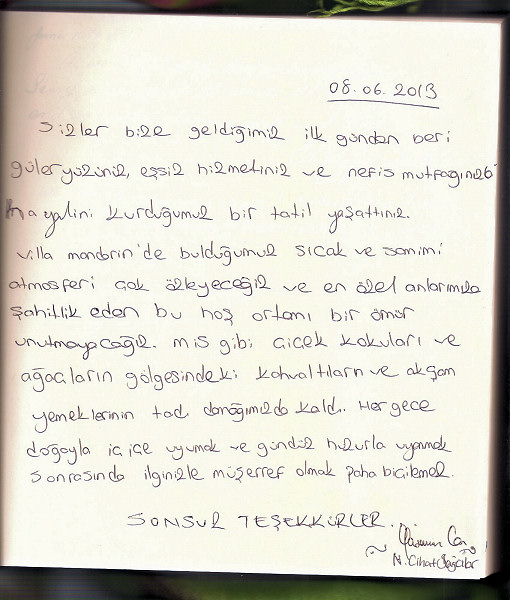 08.06.2013
Sizler bize geldiğimiz ilk günden beri
güleryüzünüz, eşsiz hizmetiniz ve nefis mutfağınızla
hayalini kurduğumuz bir tatil yaşattınız.
Villa mandarin'de bulduğumuz sıcak ve samimi
atmosferi çok özleyeceğiz ve en özel anlarımıza
şahitlik eden bu hoş ortamı bir ömür
unutmayacağız. mis gibi çiçek kokuları ve
ağaçların gölgesindeki kahvaltıların ve akşam
yemeklerinin tadı damağımızda kaldı. Her gece
doğayla iç içe uyumak ve gündüz huzurla uyanmak
sonrasında ilginizle müşerref olmak paha biçilemez.
SONSUZ TEŞEKKÜRLER..
N. Cihat